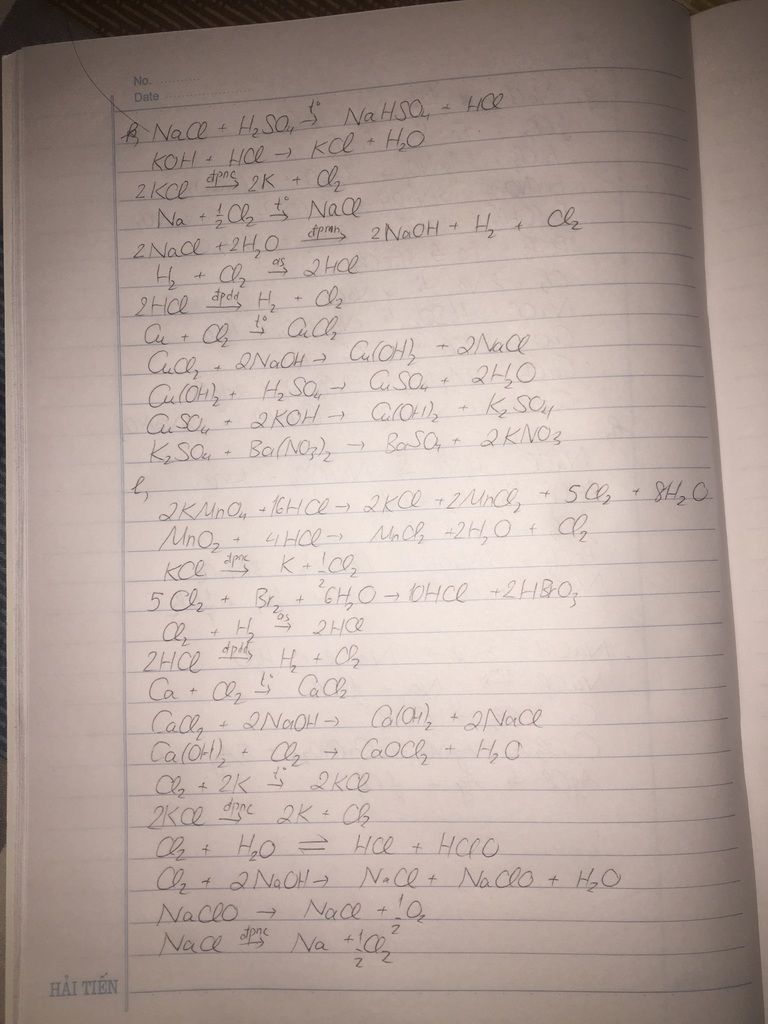 No. ............
Date ....................
k, NaCl + H₂SO₄ →(t°) NaHSO₄ + HCl
KOH + HCl → KCl + H₂O
2KCl →(đpnc) 2K + Cl₂
Na + ½Cl₂ →(t°) NaCl
2NaCl + 2H₂O →(đpmn) 2NaOH + H₂ + Cl₂
H₂ + Cl₂ →(as) 2HCl
2HCl →(đpdd) H₂ + Cl₂
Cu + Cl₂ →(t°) CuCl₂
CuCl₂ + 2NaOH → Cu(OH)₂ + 2NaCl
Cu(OH)₂ + H₂SO₄ → CuSO₄ + 2H₂O
CuSO₄ + 2KOH → Cu(OH)₂ + K₂SO₄
K₂SO₄ + Ba(NO₃)₂ → BaSO₄ + 2KNO₃
l,
2KMnO₄ + 16HCl → 2KCl + 2MnCl₂ + 5Cl₂ + 8H₂O
MnO₂ + 4HCl → MnCl₂ + 2H₂O + Cl₂
KCl →(đpnc) K + ½Cl₂
5Cl₂ + Br₂ + 6H₂O → 10HCl + 2HBrO₃
Cl₂ + H₂ →(as) 2HCl
2HCl →(đpdd) H₂ + Cl₂
Ca + Cl₂ →(t°) CaCl₂
CaCl₂ + 2NaOH → Ca(OH)₂ + 2NaCl
Ca(OH)₂ + Cl₂ → CaOCl₂ + H₂O
Cl₂ + 2K →(t°) 2KCl
2KCl →(đpnc) 2K + Cl₂
Cl₂ + H₂O ⇌ HCl + HClO
Cl₂ + 2NaOH → NaCl + NaClO + H₂O
NaClO → NaCl + ½O₂
NaCl →(đpnc) Na + ½Cl₂
HẢI TIẾN